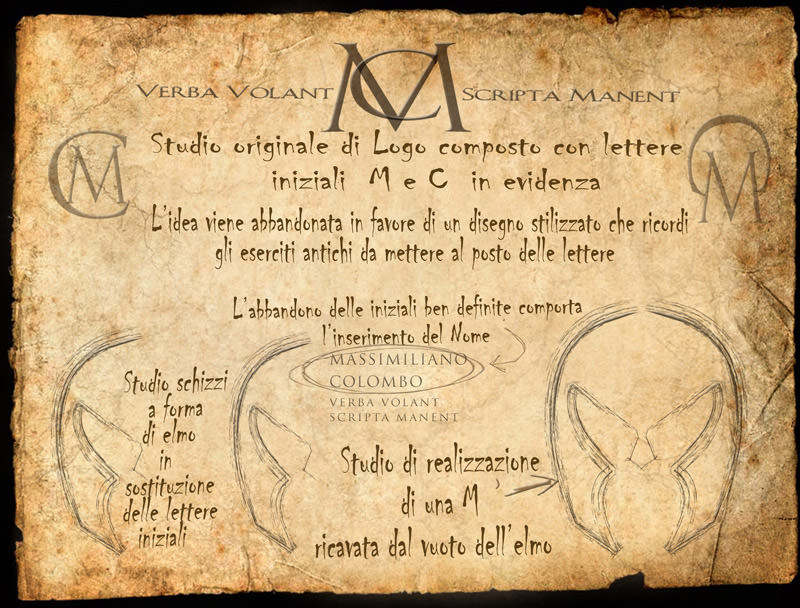 MC
VERBA VOLANT SCRIPTA MANENT
CM
CM
Studio originale di Logo composto con lettere
iniziali M e C in evidenza
L'idea viene abbandonata in favore di un disegno stilizzato che ricordi
gli eserciti antichi da mettere al posto delle lettere
L'abbandono delle iniziali ben definite comporta
l'inserimento del Nome
MASSIMILIANO
COLOMBO
VERBA VOLANT
SCRIPTA MANENT
Studio schizzi
a forma
di elmo
in
sostituzione
delle lettere
iniziali
Studio di realizzazione
di una M
ricavata dal vuoto dell'elmo